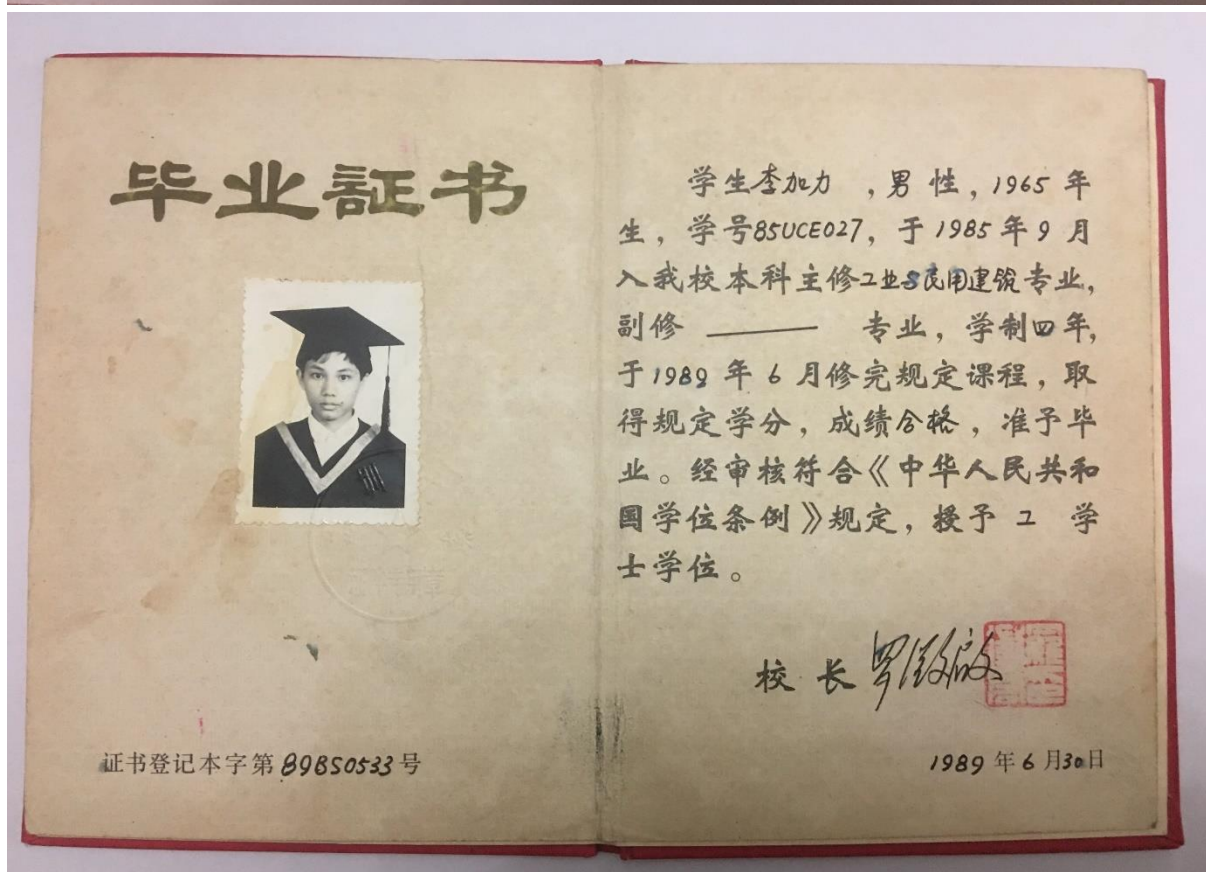 毕业証书
证书登记本字第89BS0533号
学生李加力，男性，1965年
生，学号85UCE027，于1985年9月
入我校本科主修工业与民用建筑专业，
副修 ——— 专业，学制四年，
于1989年6月修完规定课程，取
得规定学分，成绩合格，准予毕
业。经审核符合《中华人民共和
国学位条例》规定，授予工学
士学位。
校长 罗征启
1989年6月30日